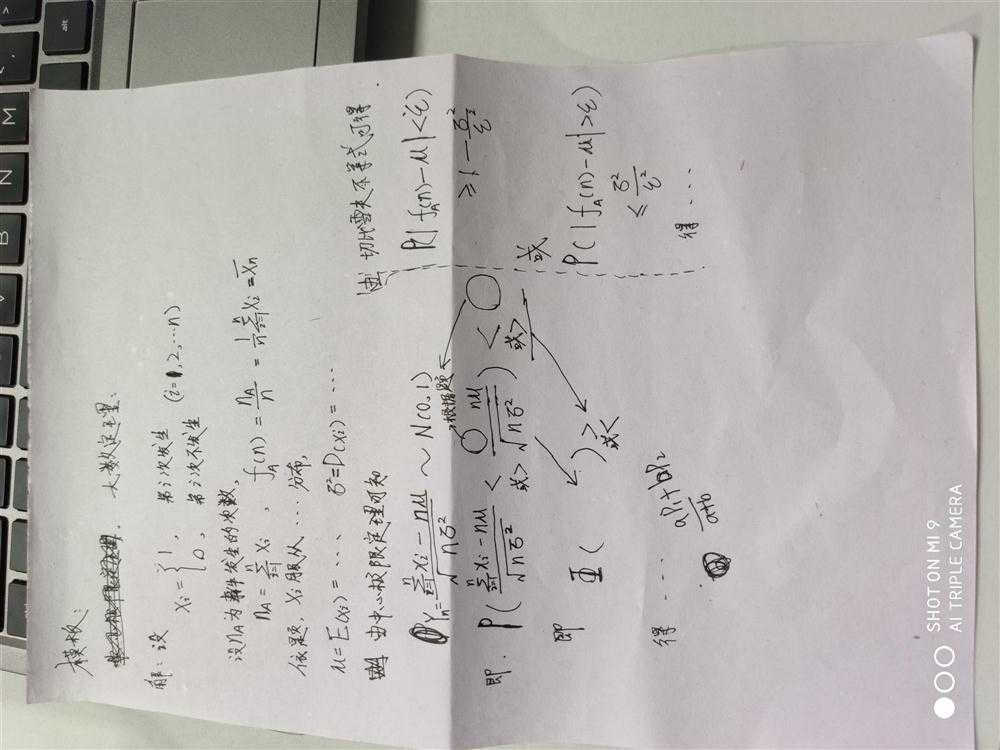 模板:
大数定理:
解:设 Xi = { 1, 第i次发生
0, 第i次不发生 (i=1,2,…n)
设 nA 为事件发生的次数,
nA = Σ(i=1→n) Xi , fA(n) = nA/n = 1/n Σ(i=1→n) Xi = X̄n
依题, Xi 服从 … 分布,
μ = E(Xi) = …, σ² = D(Xi) = …
由中心极限定理可知
Yn = (Σ(i=1→n) Xi - nμ)/√(nσ²) ~ N(0,1)
根据题
即. P( (Σ(i=1→n) Xi - nμ)/√(nσ²) < (○ - nμ)/√(nσ²) ) < ○
或> 或>
即 Φ( ) >
或<
得 …
aP1+bP2
a+b
由 切比雪夫不等式可得
P(|fA(n)-μ|<ε)
≥ 1 - σ²/ε²
或
P(|fA(n)-μ|>ε)
≤ σ²/ε²
得 …
alt
ctrl
M
N
B
>
<
SHOT ON MI 9
AI TRIPLE CAMERA